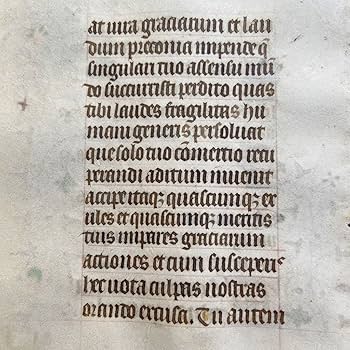 at iura graciarum et lau
dum preconia impende q̄
singulari tuo assensu mū
do succurristi perdito quas
tibi laudes fragilitas hu
mani generis persoluat
que solo tuo cōmertio recu
perandi aditum inuenit
accipe itaqꝫ quascumqꝫ ex
iles et quascumqꝫ meritis
tuis impares graciarum
actiones et cum susceperis
hec uota culpas nostras
orando excusa. Tu autem